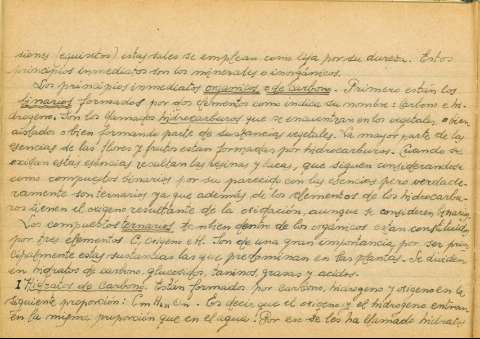 siones (equisetos) estas sales se emplean como lija por su dureza. Estos
principios inmediatos son los minerales o inorgánicos.
Los principios inmediatos organicos o de Carbono. Primero están los
binarios formados por dos elementos como indica su nombre: carbono e hi-
drogeno. Son los llamados hidrocarburos que se encuentran en los vegetales, o bien
aislados o bien formando parte de sustancias vegetales. La mayor parte de las
esencias de las flores y frutos estan formadas por hidrocarburos. Cuando se
oxidan estas esencias resultan las resinas y lacas, que siguen considerandose
como compuestos binarios por su parecido con las esencias pero verdade-
ramente son ternarios ya que además de los elementos de los hidrocarbu-
ros tienen el oxigeno resultante de la oxidación, aunque se consideren binarios.
Los compuestos ternarios tambien dentro de los organicos estan constituidos
por tres elementos C, oxigeno e H. Son de una gran importancia por ser prin-
cipalmente estas sustancias las que predominan en las plantas. Se dividen
en hidratos de carbono, glucosidos, taninos, grasas y acidos.
I Hidratos de Carbono. Estan formados por carbono, hidrogeno y oxigeno en la
siguiente proporcion: Es decir que el oxigeno y el hidrogeno entran
en la misma proporción que en el agua. Por eso se les ha llamado hidratos